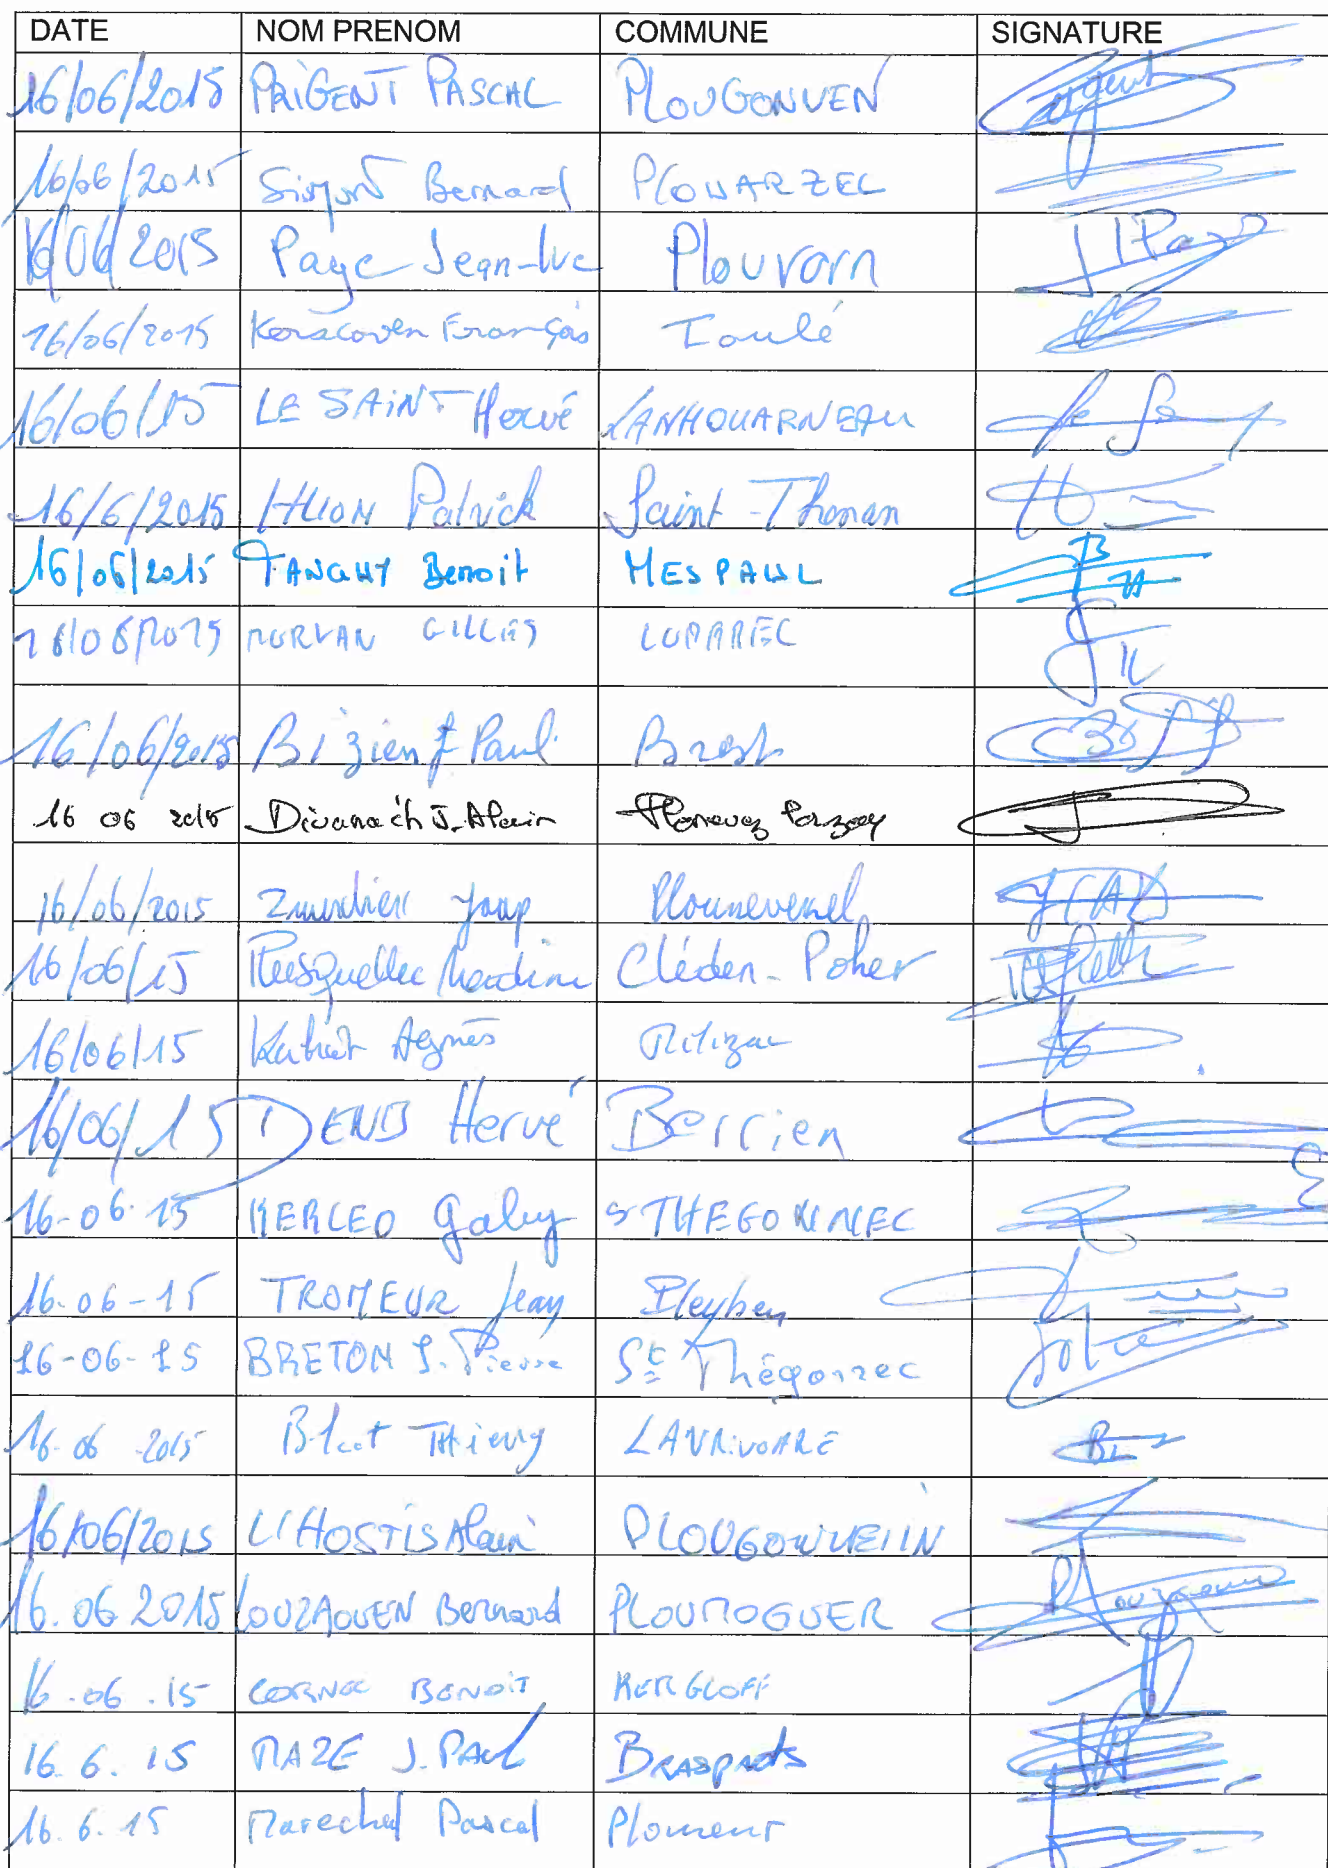 DATE NOM PRENOM COMMUNE SIGNATURE
16/06/2015 PRIGENT PASCAL PLOUGONVEN
16/06/2015 Simon Bernard PLOUARZEL
16/06/2015 Page Jean-Luc Plouvorn
16/06/2015 François Taulé
16/06/15 LE SAINT Hervé LANHOUARNEAU
16/6/2015 HLION Patrick Saint-Thonan
16/06/2015 TANGUY Benoit MESPAUL
16/06/2015 MORVAN GILLES LOPAREC
16/06/2015 Bizien J Paul Brest
16 06 2015 Divanac'h J. Alain Plonevez Porzay
16/06/2015 Jaap Plounevezel
16/06/15 Rusquellec Cléden-Poher
16/06/15 Agnès
16/06/15 Hervé Berrien
16-06-15 KERLEO Gaby ST THEGONNEC
16-06-15 TROMEUR Jean Pleyben
16-06-15 BRETON J. Pierre St Thégonnec
16-06-2015 Thierry LANRIVOARE
16/06/2015 L'HOSTIS Alain PLOUGONVELIN
16.06.2015 LOUZAOUEN Bernard PLOUMOGUER
16.06.15 CORNEC BENOIT KERGLOFF
16.6.15 MAZE J. PAUL BRASPARTS
16.6.15 Marechal Pascal Plomeur